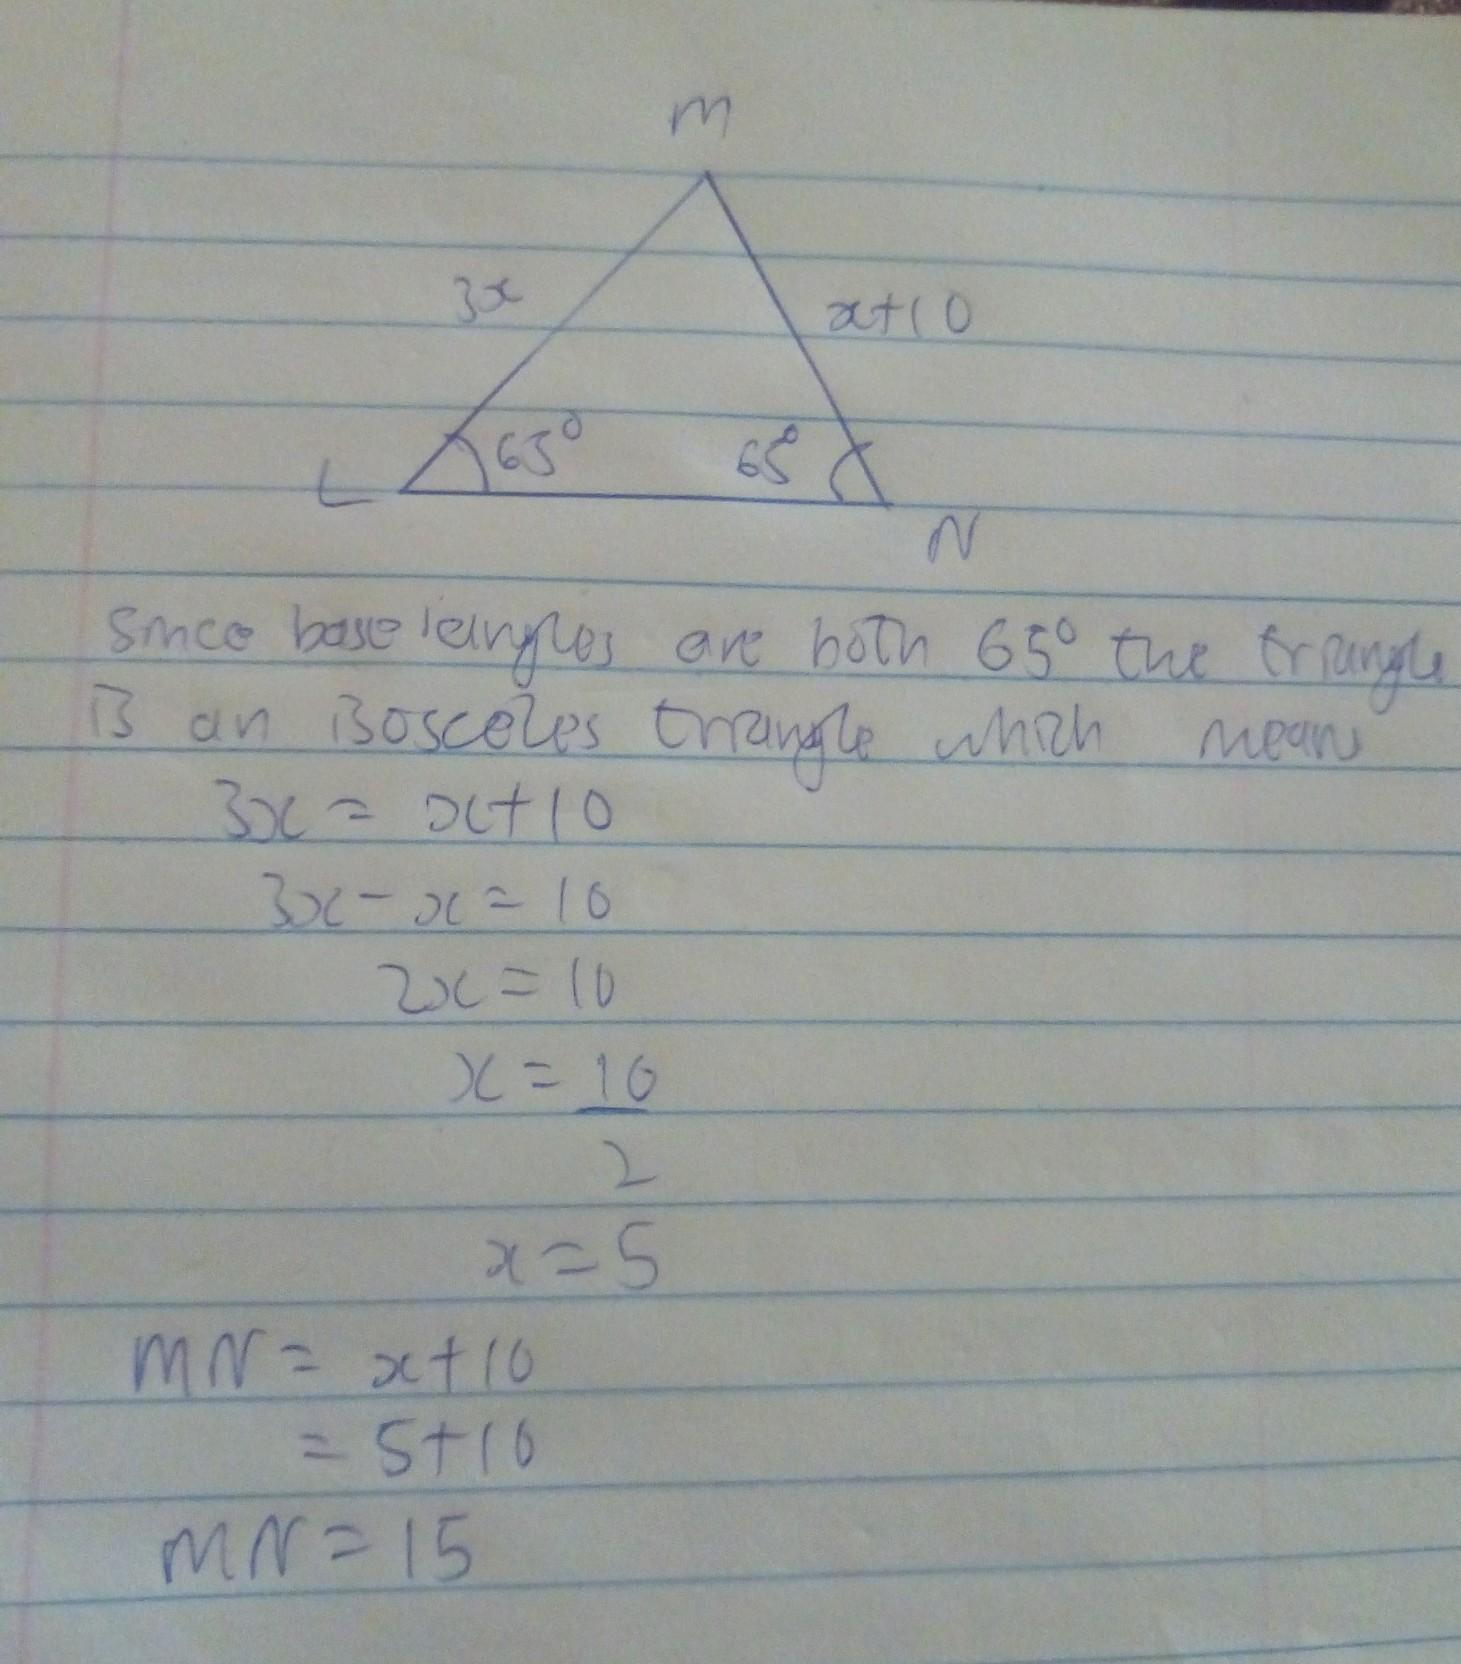 M
3x
x+10
65°
65°
L
N
Since base angles are both 65° the triangle
is an isosceles triangle which means
3x = x+10
3x - x = 10
2x = 10
x = 10
2
x = 5
MN = x+10
= 5+10
MN = 15